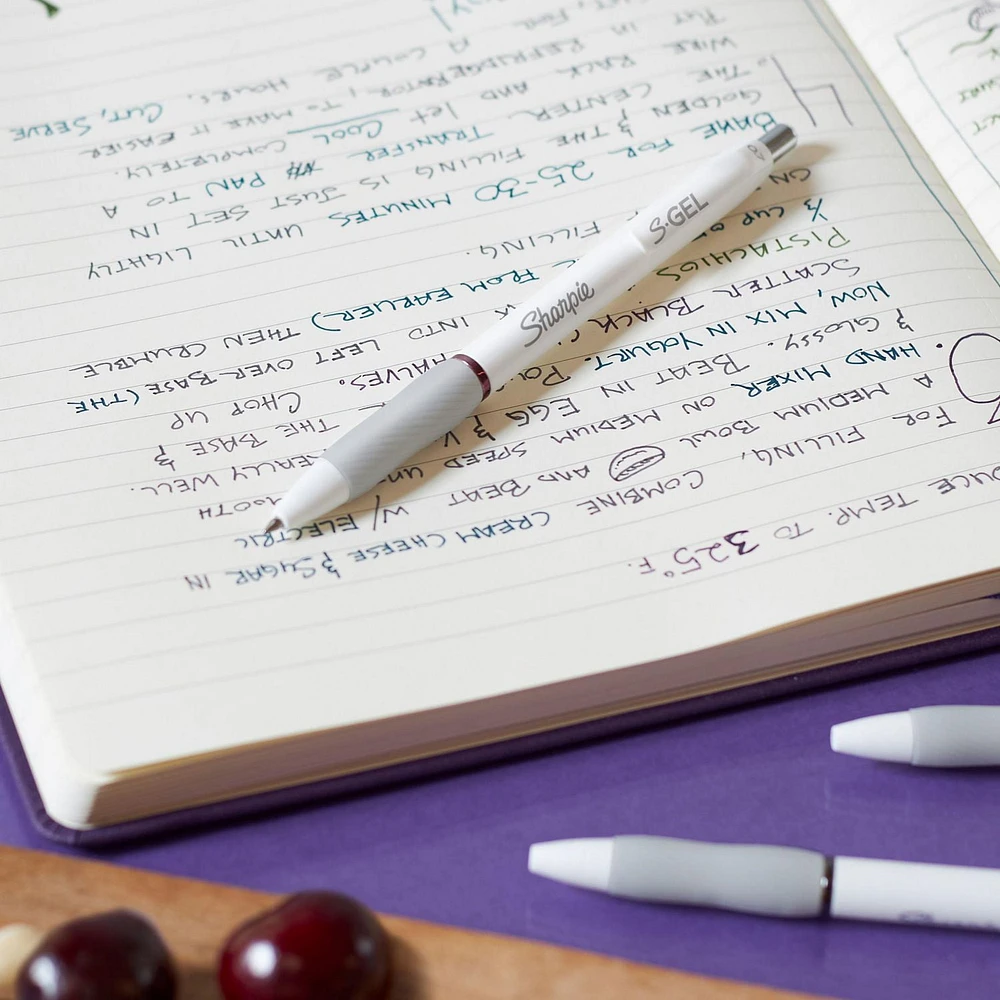 TEMP. TO 325°F.
FOR FILLING, COMBINE CREAM CHEESE & SUGAR IN
A MEDIUM BOWL AND BEAT W/ ELECTRIC
HAND MIXER ON MEDIUM SPEED
& GLOSSY. BEAT IN EGG & WELL.
NOW, MIX IN YOGURT. THE BASE &
SCATTER BLACK HALVES. CHOP UP
PISTACHIOS INTO LEFT OVER BASE (THE
⅓ CUP OF FROM EARLIER) THEN CRUMBLE
ON FILLING.
4 BAKE FOR 25-30 MINUTES UNTIL LIGHTLY
GOLDEN & THE FILLING IS JUST SET IN
THE CENTER. TRANSFER PAN TO A
WIRE RACK AND let COOL COMPLETELY.
PUT IN REFRIDGERATOR, TO MAKE IT EASIER
CUT, FOR A COUPLE HOURS. CUT, SERVE
Sharpie S·GEL